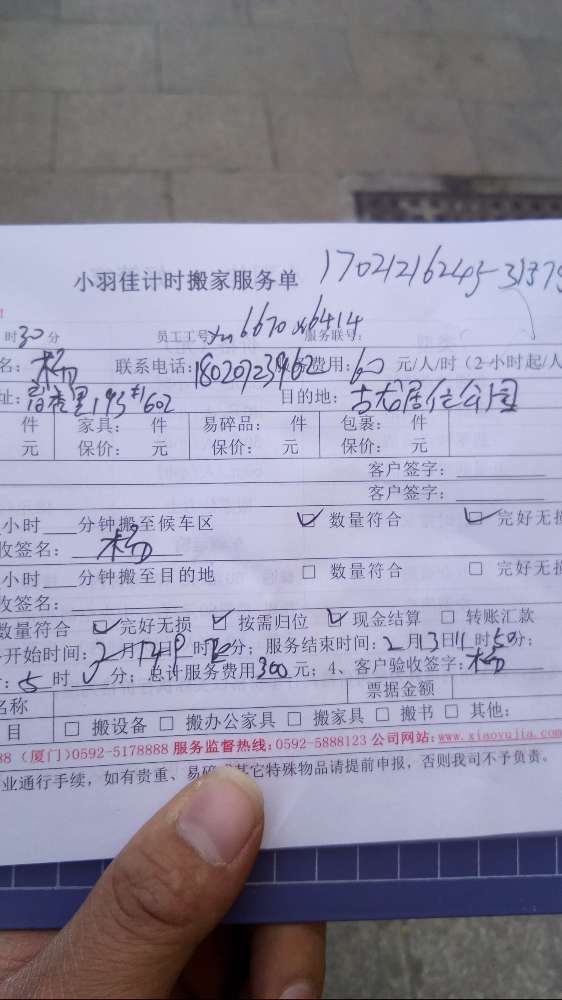 小羽佳计时搬家服务单 17021216245-31375
时30分 员工工号: xm6670 x6414 服务联号:
名: 杨 联系电话: 18020723962 服务费用: 60 元/人/时（2小时起/人
址: 193#602 目的地: 古龙居住公园
件 家具: 件 易碎品: 件 包裹: 件
元 保价: 元 保价: 元 保价: 元
客户签字:
客户签字:
小时 分钟搬至候车区 数量符合 完好无损
收签名: 杨
小时 分钟搬至目的地 数量符合 完好无损
收签名:
数量符合 完好无损 按需归位 现金结算 转账汇款
开始时间: 2月 时 分; 服务结束时间: 2月 日 时50分;
: 5时 分; 总计服务费用300元; 4、客户验收签字: 杨
名称 票据金额
目 搬设备 搬办公家具 搬家具 搬书 其他:
88（厦门）0592-5178888 服务监督热线:0592-5888123 公司网站:www.xiaoyujia.com
业通行手续，如有贵重、易碎或其它特殊物品请提前申报，否则我司不予负责。